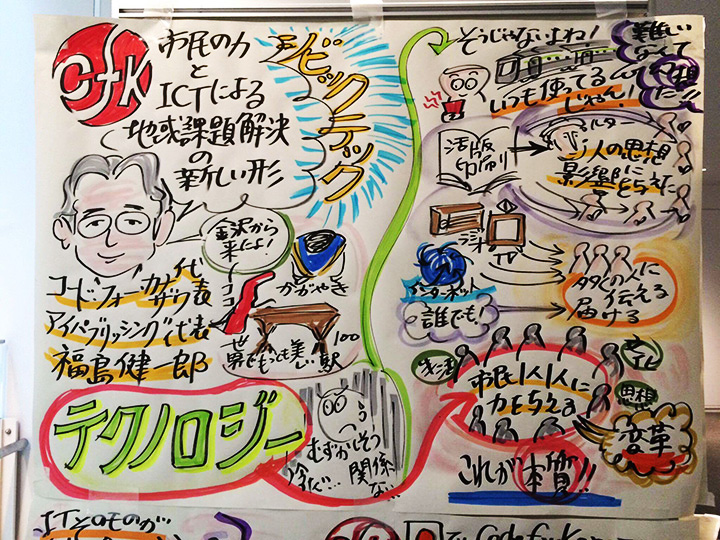 CfK
市民の力
と
ICTによる
地域課題解決
の
新しい形
シビックテック
金沢から
来たよ!
コード・フォー・カナザワ代表
アイパブリッシング代表
福島健一郎
かがやき
ココ
世界でもっとも美しい駅100
テクノロジー
むずかしそう
関係
な…
そうじゃないよね!
難しい
なんて
幻想
だ!!
いつも使ってるんで
じゃん!
活版
印刷
ルター
1人の思想
影響を与えた
ラジオ
TV
インターネット
誰でも!
多くの人に
伝える
届ける
市民1人1人に
力を与える
思想
変革
これが本質!!
ITそのものが